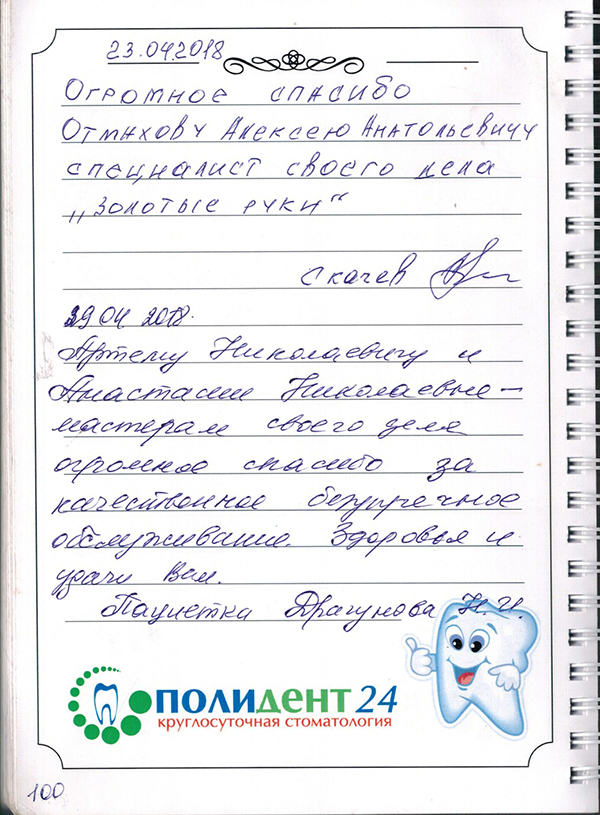 23.04.2018
Огромное спасибо
Отмахову Алексею Анатольевичу
специалист своего дела
„Золотые ручки“
Скачев
29 04 2018.
Артему Николаевичу и
Анастасии Николаевне –
мастерам своего дела
огромное спасибо за
качественное безупречное
обслуживание. Здоровья и
удачи Вам.
Пациентка Драгунова Н.И.
ПОЛИДЕНТ 24
круглосуточная стоматология
100